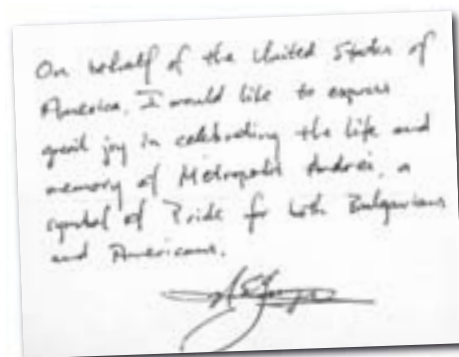 On behalf of the United States of
America, I would like to express
great joy in celebrating the life and
memory of Metropolit Andrei, a
symbol of Pride for both Bulgarians
and Americans.